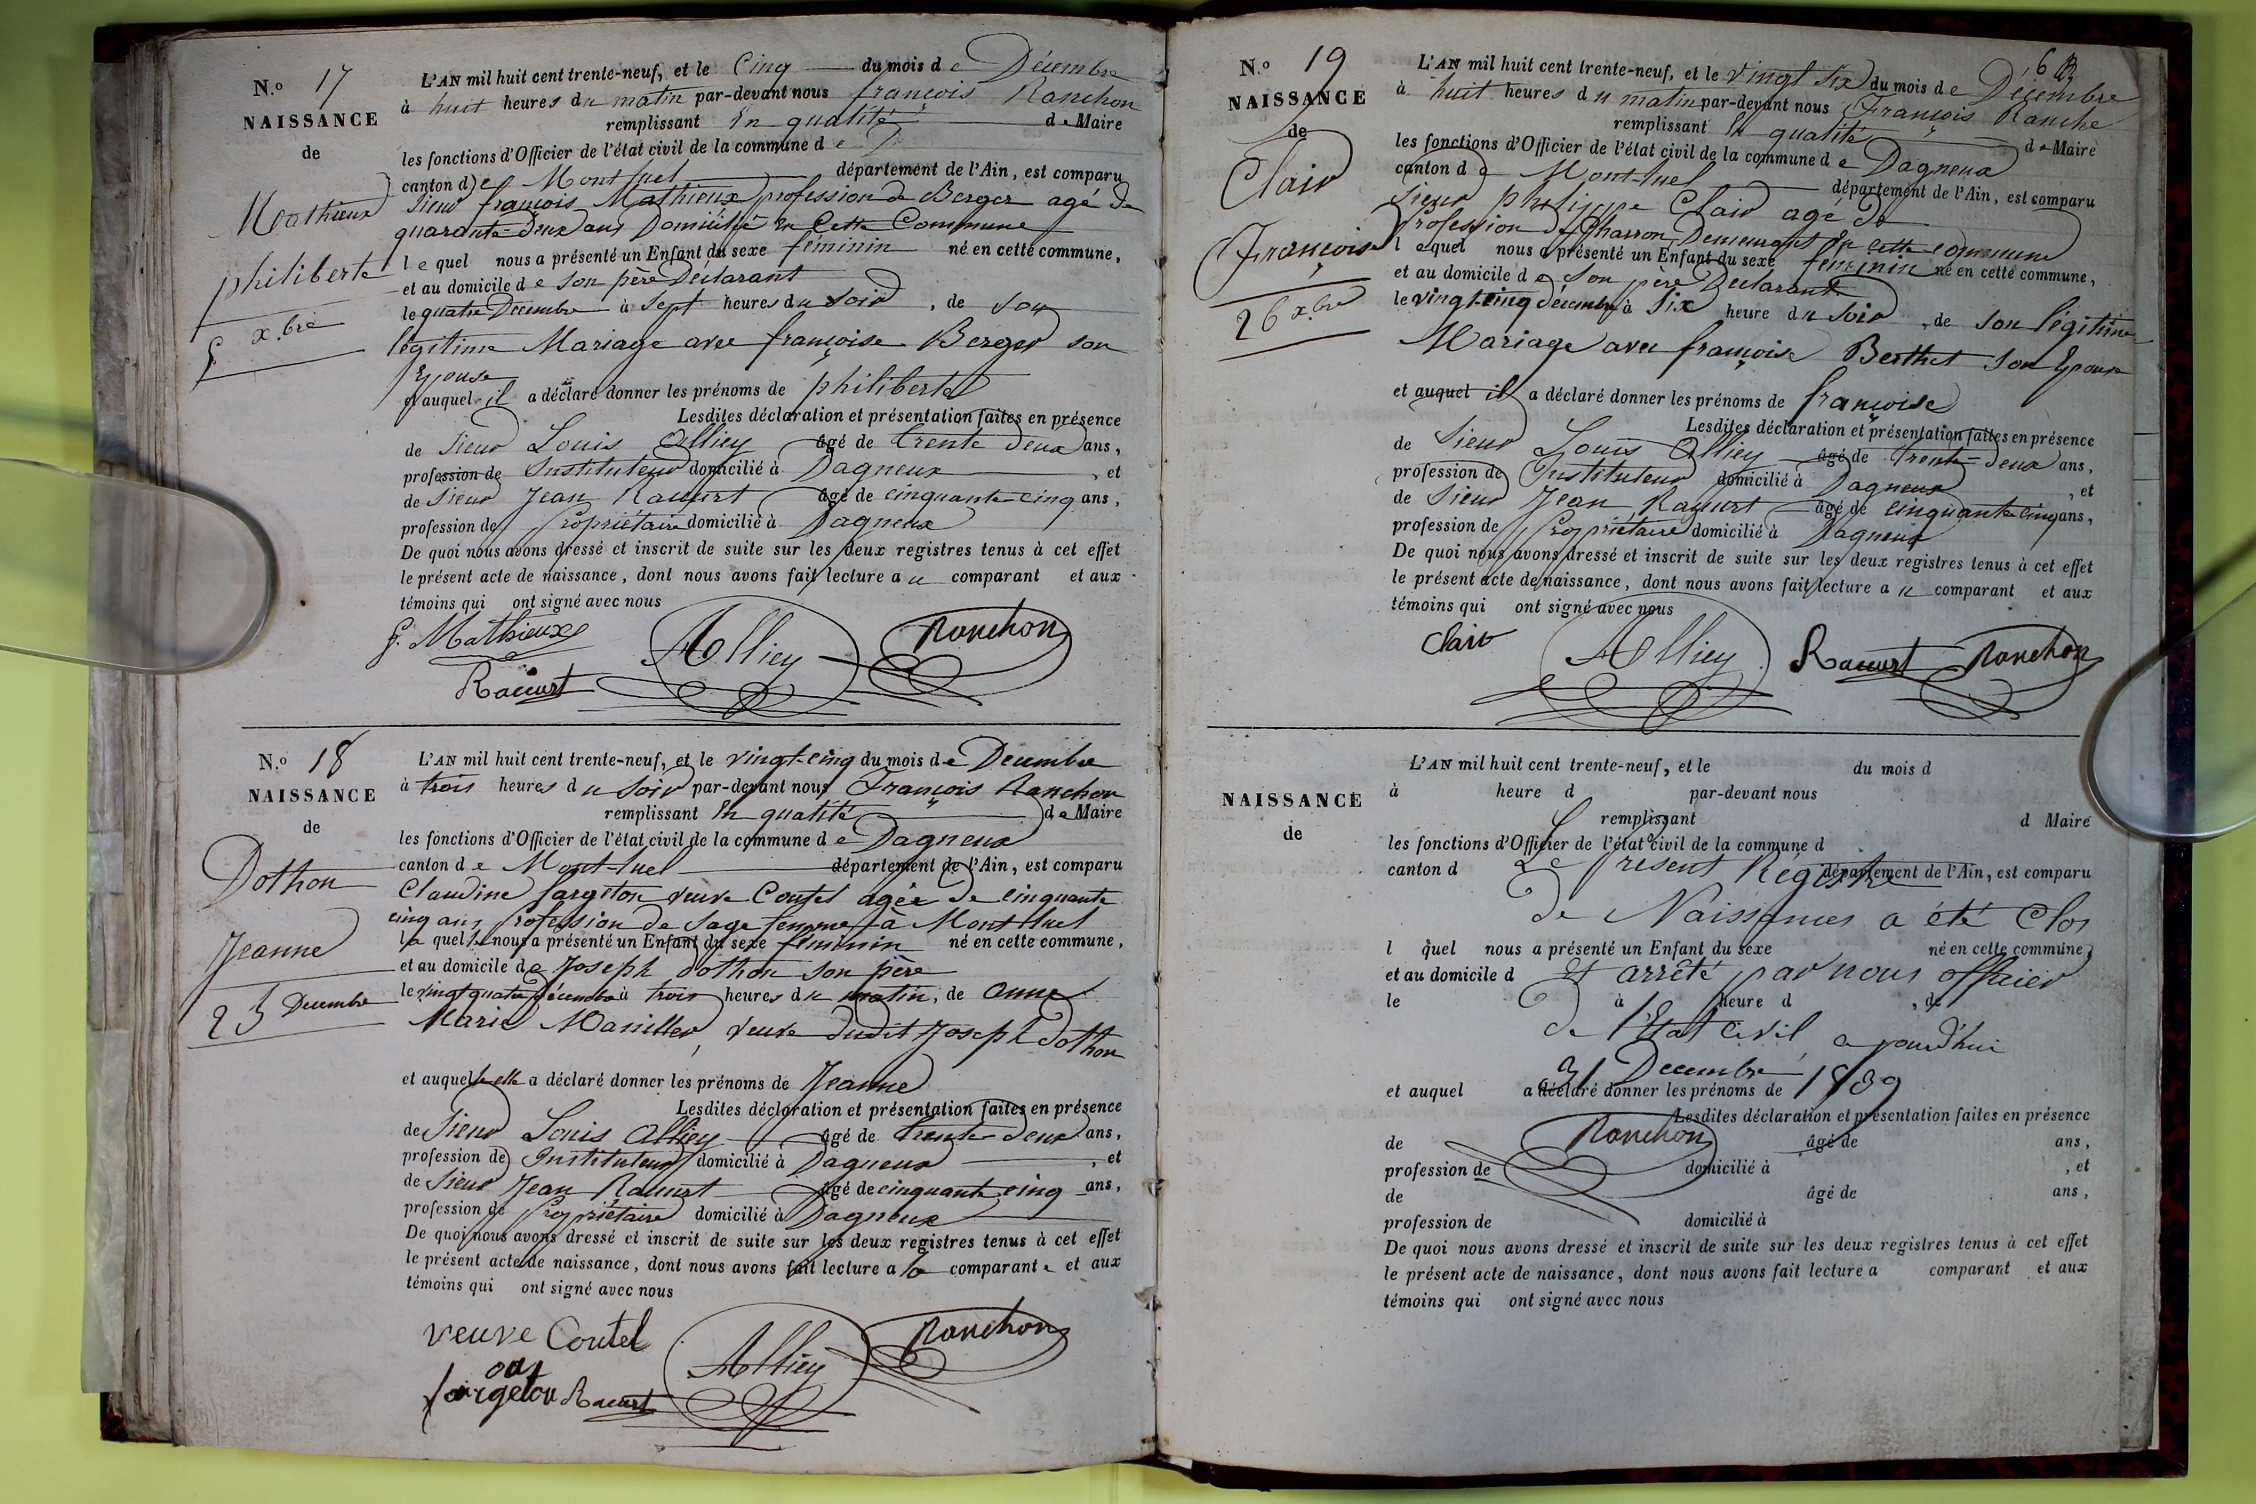 N.o 17
NAISSANCE
de
Mathieux
philiberte
5 xbre
L'AN mil huit cent trente-neuf, et le Cinq du mois de Décembre
à huit heures du matin par-devant nous françois Ranchon
remplissant En qualité de Maire
les fonctions d'Officier de l'état civil de la commune de
canton de Montluel département de l'Ain, est comparu
Sieur françois Mathieux profession de Berger agé de
quarante-deux ans Domicilié en Cette Commune
lequel nous a présenté un Enfant du sexe féminin né en cette commune,
et au domicile de son père Déclarant
le quatre Décembre à sept heures du soir, de son
légitime Mariage avec françoise Berger son
Epouse
et auquel il a déclaré donner les prénoms de philiberte
Lesdites déclaration et présentation faites en présence
de Sieur Louis Alliey âgé de trente deux ans,
profession de Instituteur domicilié à Dagneux, et
de Sieur Jean Racurt âgé de cinquante-cinq ans,
profession de Propriétaire domicilié à Dagneux
De quoi nous avons dressé et inscrit de suite sur les deux registres tenus à cet effet
le présent acte de naissance, dont nous avons fait lecture au comparant et aux
témoins qui ont signé avec nous
f. Mathieux Alliey Ranchon
Racurt
N.o 18
NAISSANCE
de
Dothon
Jeanne
25 Decembre
L'AN mil huit cent trente-neuf, et le vingt-cinq du mois de Decembre
à trois heures du soir par-devant nous François Ranchon
remplissant En qualité de Maire
les fonctions d'Officier de l'état civil de la commune de Dagneux
canton de Montluel département de l'Ain, est comparu
Claudine fargeton veuve Coutel agée de cinquante
cinq ans, Profession de Sage femme à Montluel
laquelle nous a présenté un Enfant du sexe féminin né en cette commune,
et au domicile de Joseph dothon son père
le vingt quatre décembre à trois heures du matin, de anne
Marie Manillier, veuve dudit Joseph Dothon
et auquel elle a déclaré donner les prénoms de Jeanne
Lesdites déclaration et présentation faites en présence
de Sieur Louis Alliey âgé de trente-deux ans,
profession de Instituteur domicilié à Dagneux, et
de Sieur Jean Racurt âgé de cinquante cinq ans,
profession de Propriétaire domicilié à Dagneux
De quoi nous avons dressé et inscrit de suite sur les deux registres tenus à cet effet
le présent acte de naissance, dont nous avons fait lecture a la comparante et aux
témoins qui ont signé avec nous
veuve Coutel Alliey Ranchon
fargeton Racurt
N.o 19
NAISSANCE
de
Clair
François
26 xbre
L'AN mil huit cent trente-neuf, et le vingt six du mois de Décembre
à huit heures du matin par-devant nous François Ranche
remplissant En qualité de Maire
les fonctions d'Officier de l'état civil de la commune de Dagneux
canton de Montluel département de l'Ain, est comparu
Sieur Philippe Clair agé de
Profession de Charron Demeurant En cette commune
lequel nous a présenté un Enfant du sexe féminin né en cette commune,
et au domicile de son père Déclarant
le vingt-cinq décembre à Six heure du soir, de son légitime
Mariage avec françoise Berthet son Epouse
et auquel il a déclaré donner les prénoms de françoise
Lesdites déclaration et présentation faites en présence
de Sieur Louis Alliey âgé de trente-deux ans,
profession de Instituteur domicilié à Dagneux, et
de Sieur Jean Racurt âgé de cinquante cinq ans,
profession de Propriétaire domicilié à Dagneux
De quoi nous avons dressé et inscrit de suite sur les deux registres tenus à cet effet
le présent acte de naissance, dont nous avons fait lecture au comparant et aux
témoins qui ont signé avec nous
Clair Alliey Racurt Ranchon
NAISSANCE
de
L'AN mil huit cent trente-neuf, et le du mois d
à heure d par-devant nous
remplissant d Maire
les fonctions d'Officier de l'état civil de la commune d
canton d département de l'Ain, est comparu
Le Présent Régistre
De Naissances a été Clos
l quel nous a présenté un Enfant du sexe né en cette commune,
et au domicile d
Et arrêté par nous officier
le à heure d , de
De l'Etat Civil aujourd'hui
31 Decembre 1839
et auquel a déclaré donner les prénoms de
Lesdites déclaration et présentation faites en présence
Ranchon
de âgé de ans,
profession de domicilié à , et
de âgé de ans,
profession de domicilié à
De quoi nous avons dressé et inscrit de suite sur les deux registres tenus à cet effet
le présent acte de naissance, dont nous avons fait lecture a comparant et aux
témoins qui ont signé avec nous